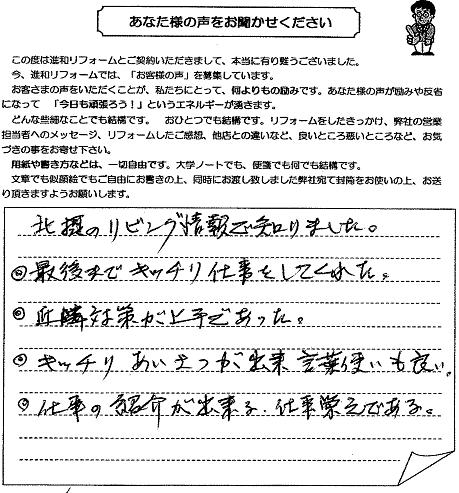 あなた様の声をお聞かせください
この度は進和リフォームとご契約いただきまして、本当に有り難うございました。
今、進和リフォームでは、「お客様の声」を募集しています。
お客さまの声をいただくことが、私たちにとって、何よりもの励みです。あなた様の声が励みや反省
になって 「今日も頑張ろう！」というエネルギーが湧きます。
どんな些細なことでも結構です。 おひとつでも結構です。リフォームをしたきっかけ、弊社の営業
担当者へのメッセージ、リフォームしたご感想、他店との違いなど、良いところ悪いところなど、お気
づきの事をお寄せ下さい。
用紙や書き方などは、一切自由です。大学ノートでも、便箋でも何でも結構です。
文章でも似顔絵でもご自由にお書きの上、同時にお渡し致しました弊社宛て封筒をお使いの上、お送
り頂きますようお願いします。
北摂のリビング情報で知りました。
◎最後まで キッチリ仕事をしてくれた。
◎近隣対策が上手であった。
◎キッチリ あいさつが出来 言葉使いも良い。
◎仕事の紹介が出来る・仕事栄えである。